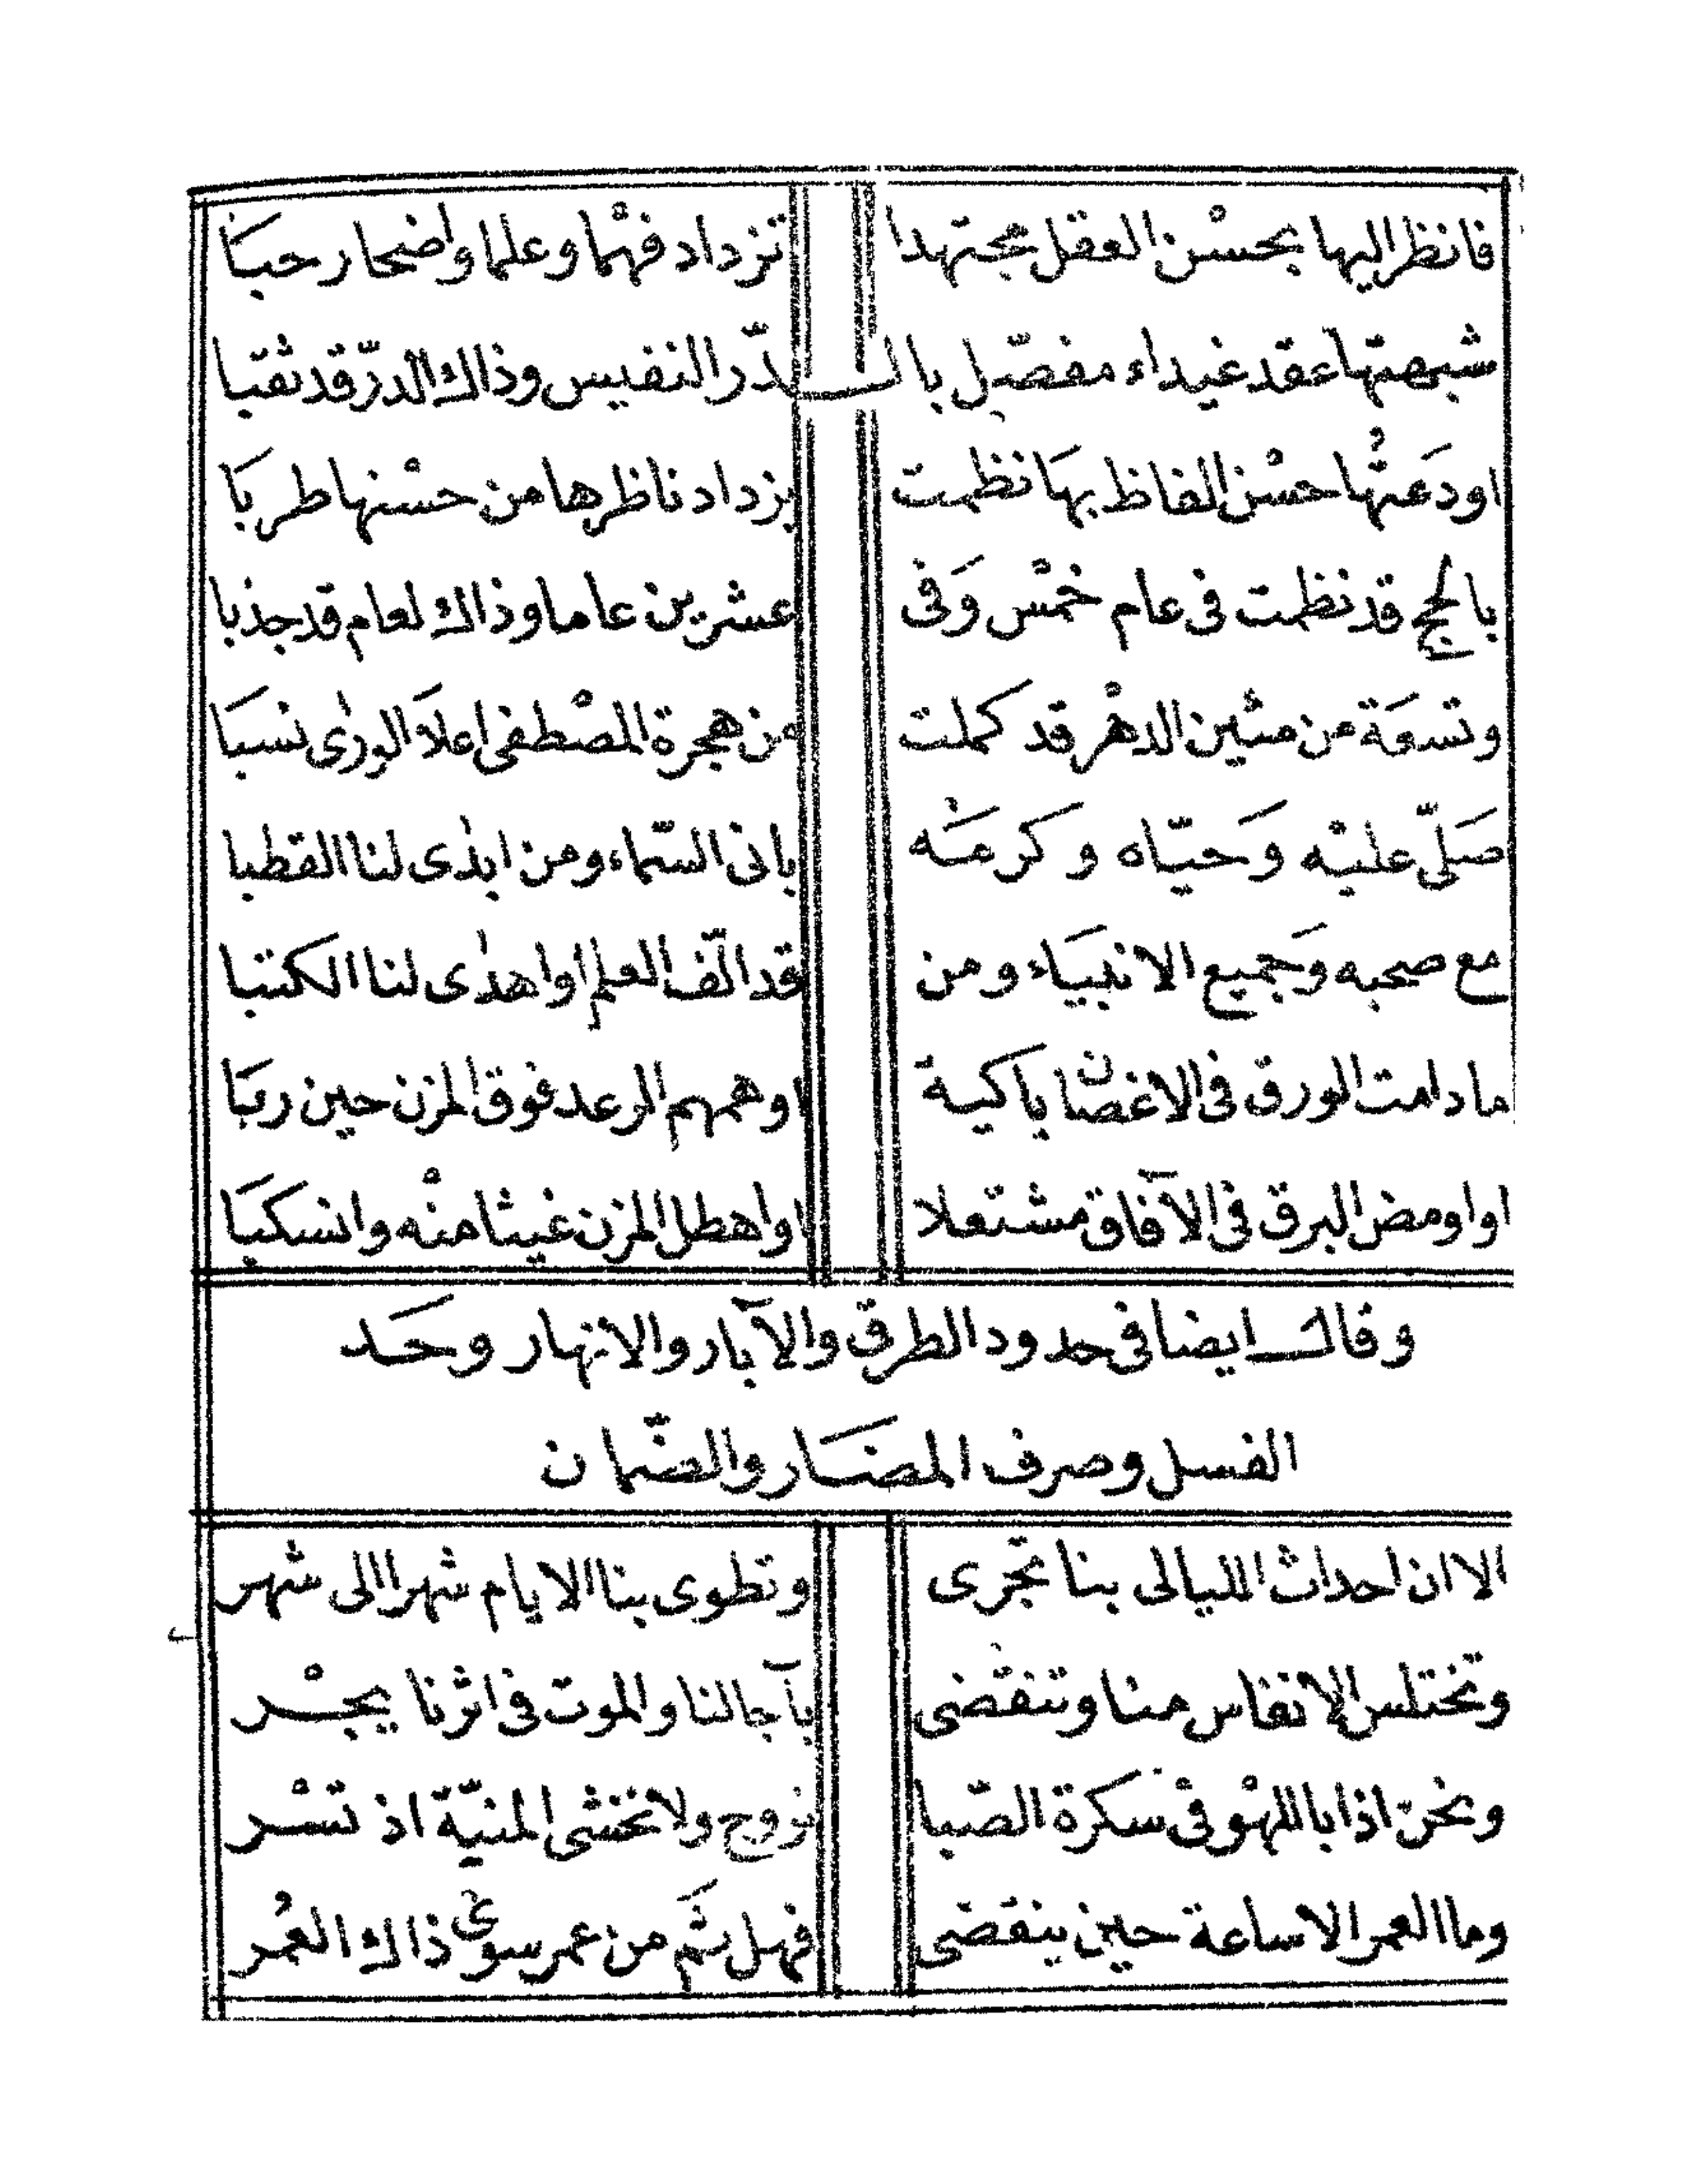 فانظر اليها بحسْن العقل مجتهدا تزداد فهْما وعلما واضحا رحبَا
شبهتها عقد غيداء مفصّل بالـ ـدّر النفيس وذاك الدرّ قد ثقبا
اودَعتُها حسْن الفاظ بهَا نظمت يزداد ناظرها من حسْنها طربَا
بالحج قد نظمت فى عام خمْس وَفى عشرين عاما وذاك لعام قد جذبا
وتسعَة من مئين الدهْر قد كملت من هجرة المصْطفى اعلاَ الورٰى نسبَا
صَلّى عليْه وَحيّاه وكرمَه بانى السّماء ومن ابدٰى لنا القطبا
مع صحبه وَجميع الانبيَاء ومن قد الّف العلم او اهدٰى لنا الكتبا
ما دامت الورق فى الاغصان باكية او همهم الرعد فوق المزن حين ربَا
او اومض البرق فى الآفاق مشتعلا او اهطل المزن غيثا منْه وانسكبَا
وقال ايضا فى حدود الطرق والآبار والانهار وحَد
الفسل وصرف المضَار والضّمان
الا ان احداث الليالى بنا تجرى وتطوى بنا الايام شهرا الى شهر
وتختلس الانفاس منا وتنقضى بآجالنا والموت فى اثرنا يجْر
ونحن اذا باللهْو فى سكرة الصّبا نروح ولا نخشى المنيّة اذ تسْر
وما العمر الا ساعة حين ينقضى فهل ثَم من عمر سوى ذاك العُمر